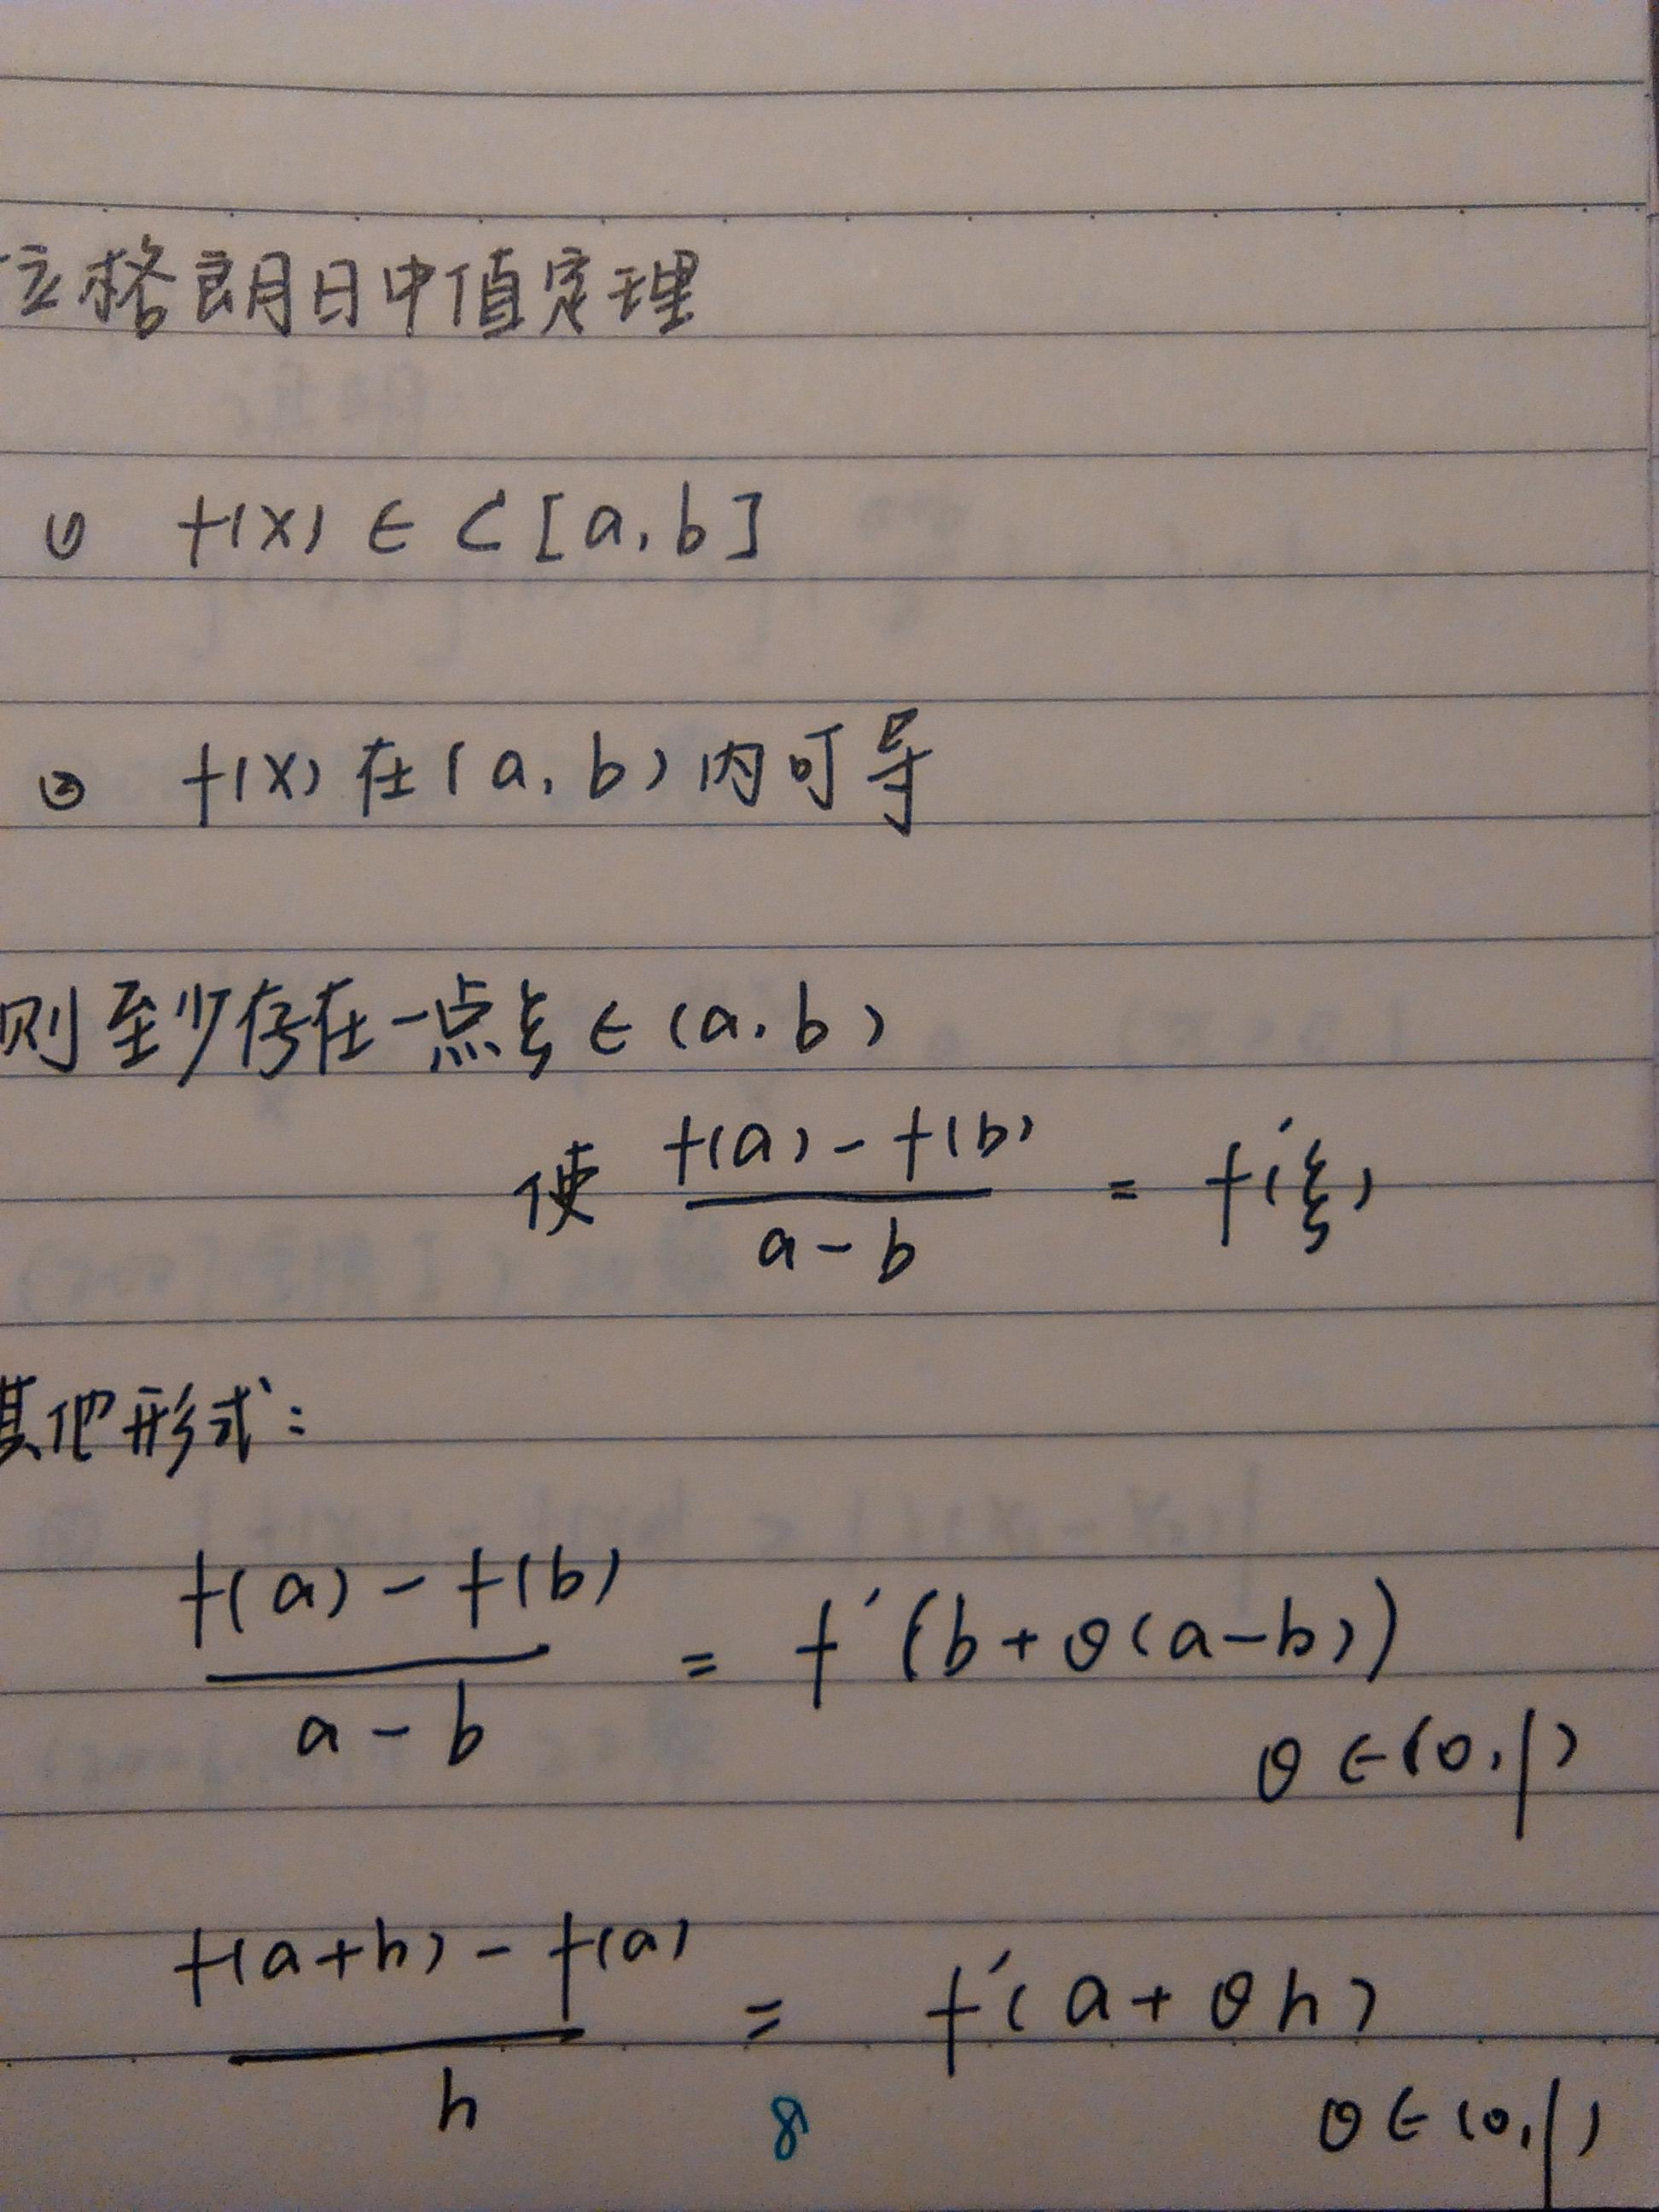 拉格朗日中值定理
① f(x) ∈ C[a,b]
② f(x)在(a,b)内可导
则至少存在一点ξ∈(a,b)
使 \frac{f(a)-f(b)}{a-b} = f'(ξ)
其他形式:
\frac{f(a)-f(b)}{a-b} = f'(b+θ(a-b))
θ∈(0,1)
\frac{f(a+h)-f(a)}{h} = f'(a+θh)
θ∈(0,1)
8